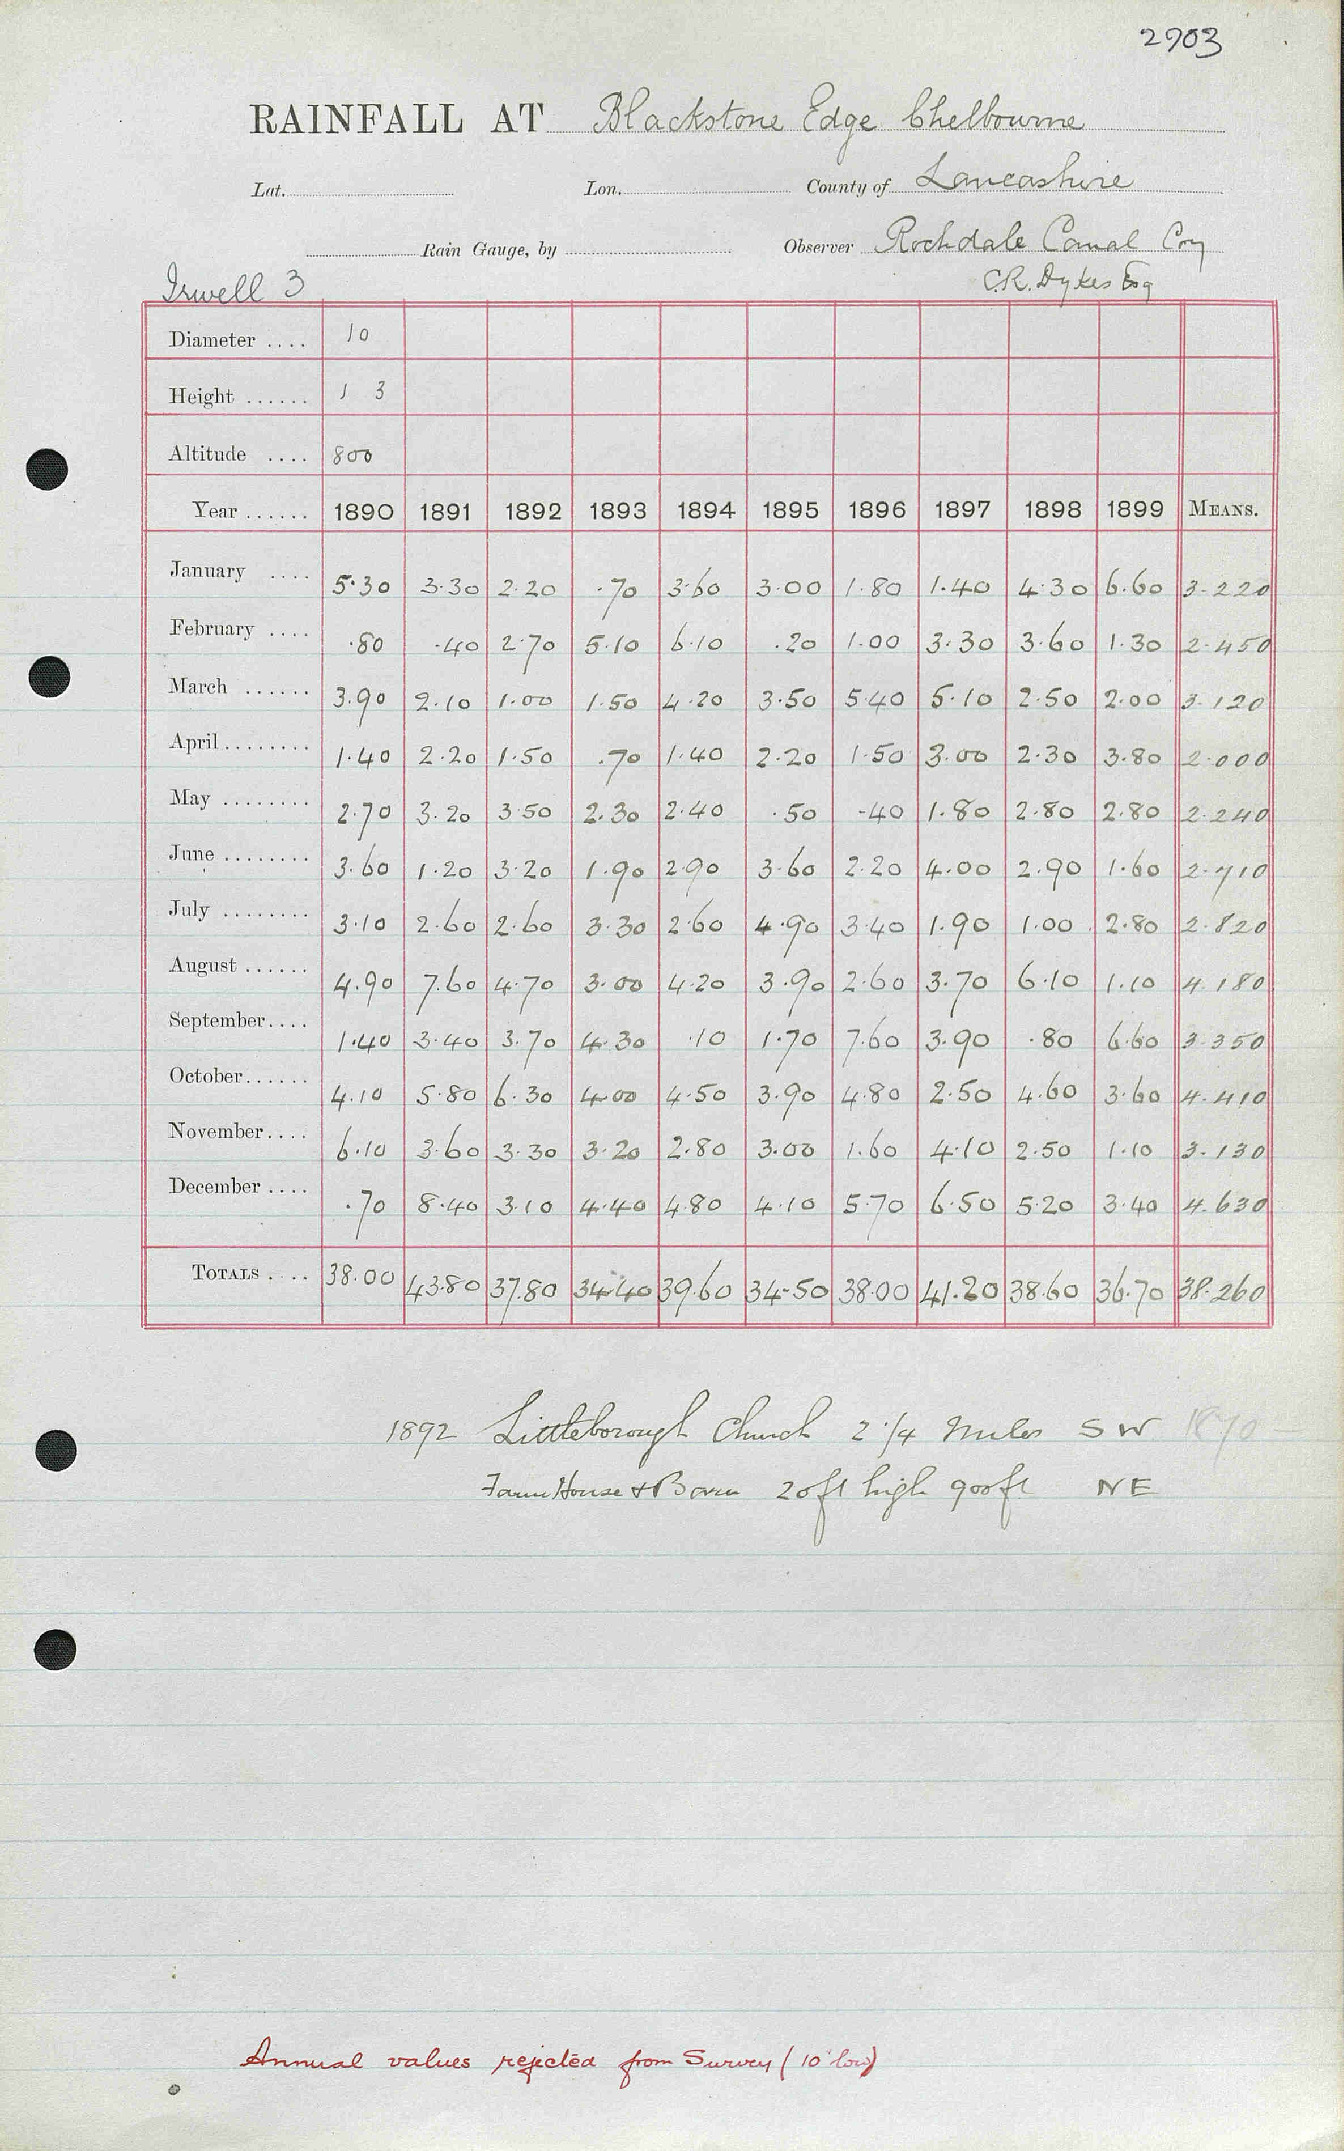 2903
RAINFALL AT Blackstone Edge Chelbourne
Lat. Lon. County of Lancashire
Rain Gauge, by Observer Rochdale Canal Coy
Irwell 3 C.R. Dykes Esq
Diameter .... 10
Height ...... 1 3
Altitude .... 800
Year ...... 1890 1891 1892 1893 1894 1895 1896 1897 1898 1899 MEANS.
January .... 5.30 3.30 2.20 .70 3.60 3.00 1.80 1.40 4.30 6.60 3.220
February .... .80 .40 2.70 5.10 6.10 .20 1.00 3.30 3.60 1.30 2.450
March ...... 3.90 2.10 1.00 1.50 4.20 3.50 5.40 5.10 2.50 2.00 3.120
April ........ 1.40 2.20 1.50 .70 1.40 2.20 1.50 3.00 2.30 3.80 2.000
May ........ 2.70 3.20 3.50 2.30 2.40 .50 .40 1.80 2.80 2.80 2.240
June ........ 3.60 1.20 3.20 1.90 2.90 3.60 2.20 4.00 2.90 1.60 2.710
July ........ 3.10 2.60 2.60 3.30 2.60 4.90 3.40 1.90 1.00 2.80 2.820
August ...... 4.90 7.60 4.70 3.00 4.20 3.90 2.60 3.70 6.10 1.10 4.180
September .... 1.40 3.40 3.70 4.30 .10 1.70 7.60 3.90 .80 6.60 3.350
October ...... 4.10 5.80 6.30 4.00 4.50 3.90 4.80 2.50 4.60 3.60 4.410
November .... 6.10 3.60 3.30 3.20 2.80 3.00 1.60 4.10 2.50 1.10 3.130
December .... .70 8.40 3.10 4.40 4.80 4.10 5.70 6.50 5.20 3.40 4.630
TOTALS .... 38.00 43.80 37.80 34.40 39.60 34.50 38.00 41.20 38.60 36.70 38.260
1892 Littleborough Church 2 1/4 Miles SW 1870 —
Farm House & Barn 20ft high 900ft NE
Annual values rejected from Survey (10% low)